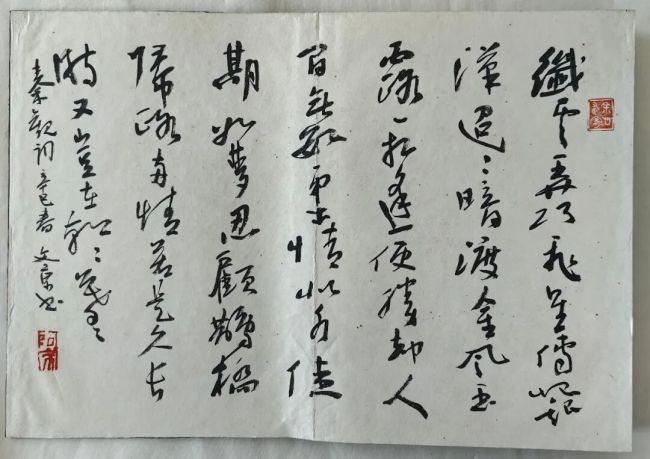 纖雲弄巧飛星傳恨銀
漢迢〻暗渡金風玉
露一相逢便勝却人
間無數柔情似水佳
期如夢忍顧鵲橋
歸路兩情若是久長
時又豈在朝〻暮〻
秦觀詞辛巳春文京书